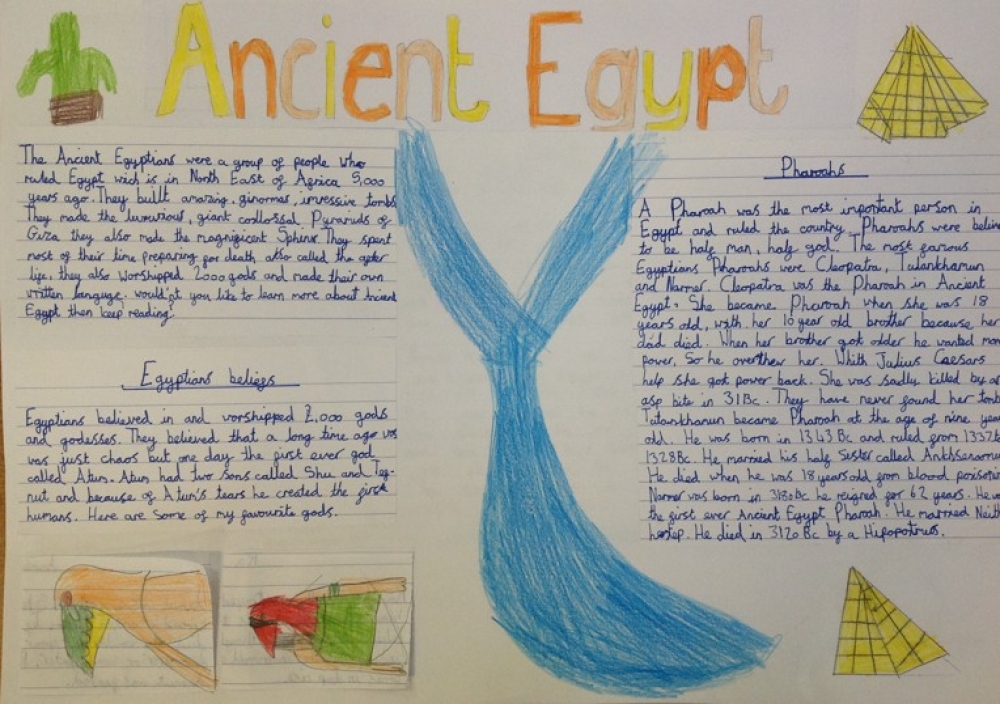 Ancient Egypt
The Ancient Egyptians were a group of people who
ruled Egypt wich is in North East of Agrica 5,000
years ago. They built amazing, ginormas, impressive tombs
They made the luxurious, giant collossal Pyramids of
Giza they also made the magnigicent Sphinx. They spent
most of their time preparing for death also called the after
life, they also worshipped 2000 gods and made their own
written languge. would'nt you like to learn more about Ancient
Egypt then keep reading!
Egyptians beliefs
Egyptians believed in and worshipped 2,000 gods
and godesses. They believed that a long time ago
was just chaos but one day the first ever god
called Atum. Atum had two sons called Shu and Teg-
nut and because of Atum's tears he created the first
humans. Here are some of my favourite gods.
Pharoahs
A Pharoah was the most important person in
Egypt and ruled the country. Pharoahs were
to be half man, half god. The most famous
Egyptians Pharoahs were Cleopatra, Tutankhamun
and Narmer. Cleopatra was the Pharoah in Ancient
Egypt. She became Pharoah when she was 18
years old, with her 10 year old brother because her
dad died. When her brother got older he wanted
power, So he overthew her. Whith Julius Caesars
help she got power back. She was sadly killed by
asp bite in 31Bc. They have never found her
Tutankhamun became Pharoah at the age of nine
old. He was born in 1343 Bc and ruled from
1328Bc. He married his half Sister called
He died when he was 18 years old from blood
Narmer was born in he reigned for 62 years.
the first ever Ancient Egypt Pharoah. He married
He died in 3120 Bc by a